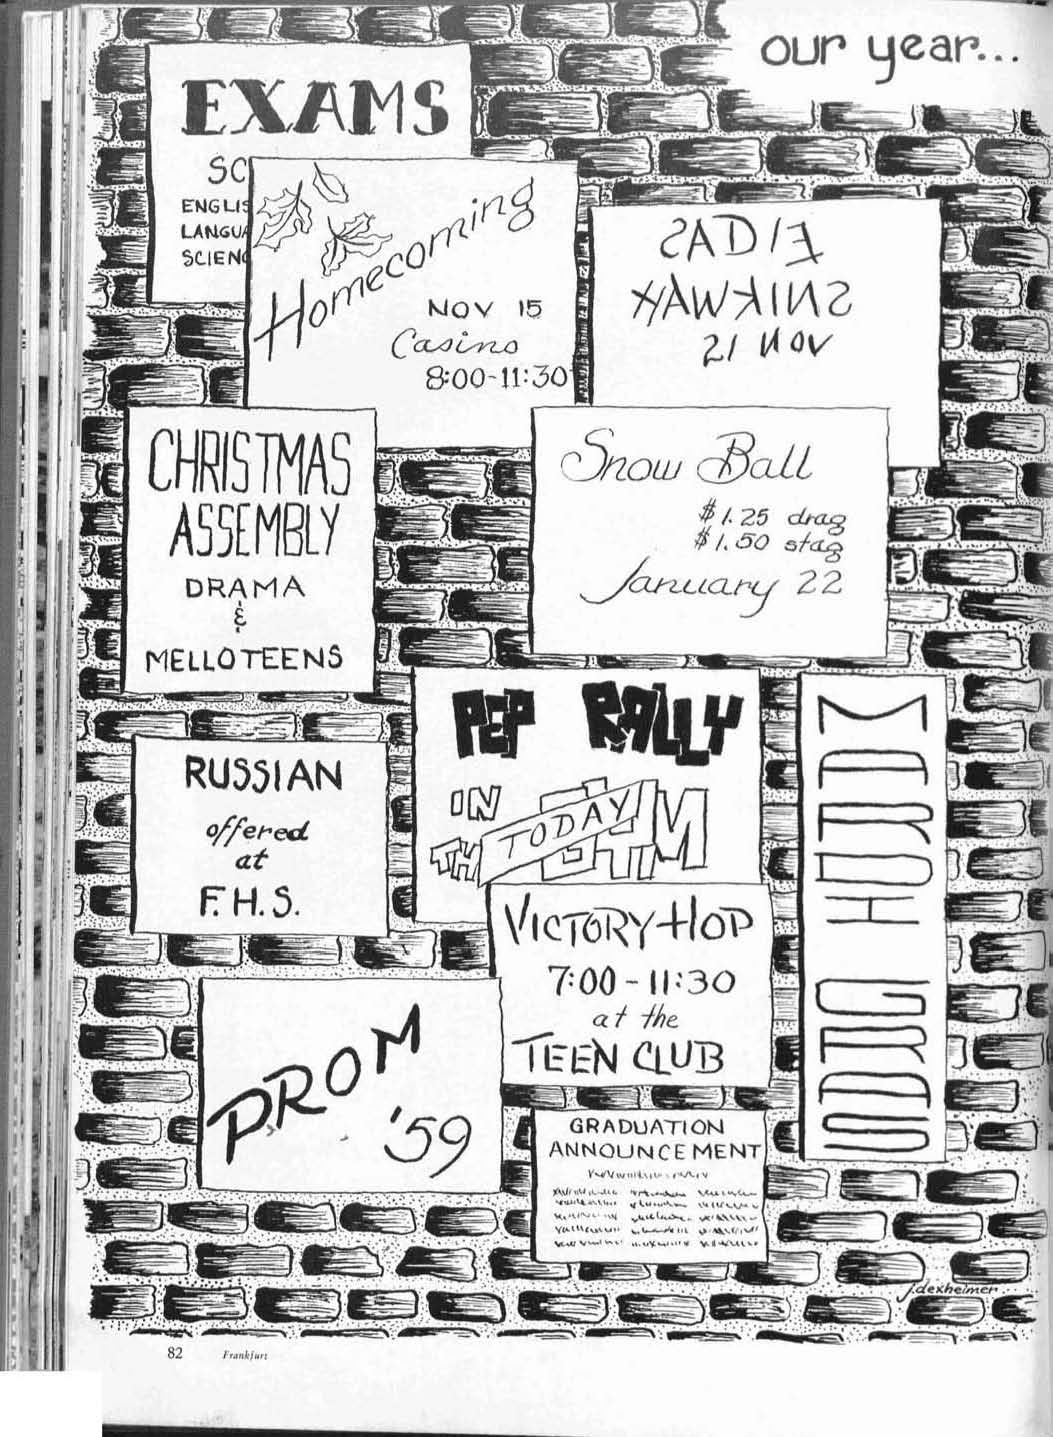 our year...
EXAMS
SC
ENGLIS
LANGUA
SCIENC
Homecoming
NOV 15
Casino
8:00-11:30
SADIE
HAWKINS
21 NOV
CHRISTMAS
ASSEMBLY
DRAMA
&
MELLOTEENS
Snow Ball
$1.25 drag
$1.50 stag
January 22
PEP RALLY
IN
TH
TODAY
MARDI GRAS
RUSSIAN
offered
at
F.H.S.
VICTORY HOP
7:00-11:30
at the
TEEN CLUB
PROM
'59
GRADUATION
ANNOUNCEMENT
j.dexheimer
82 Frankfurt